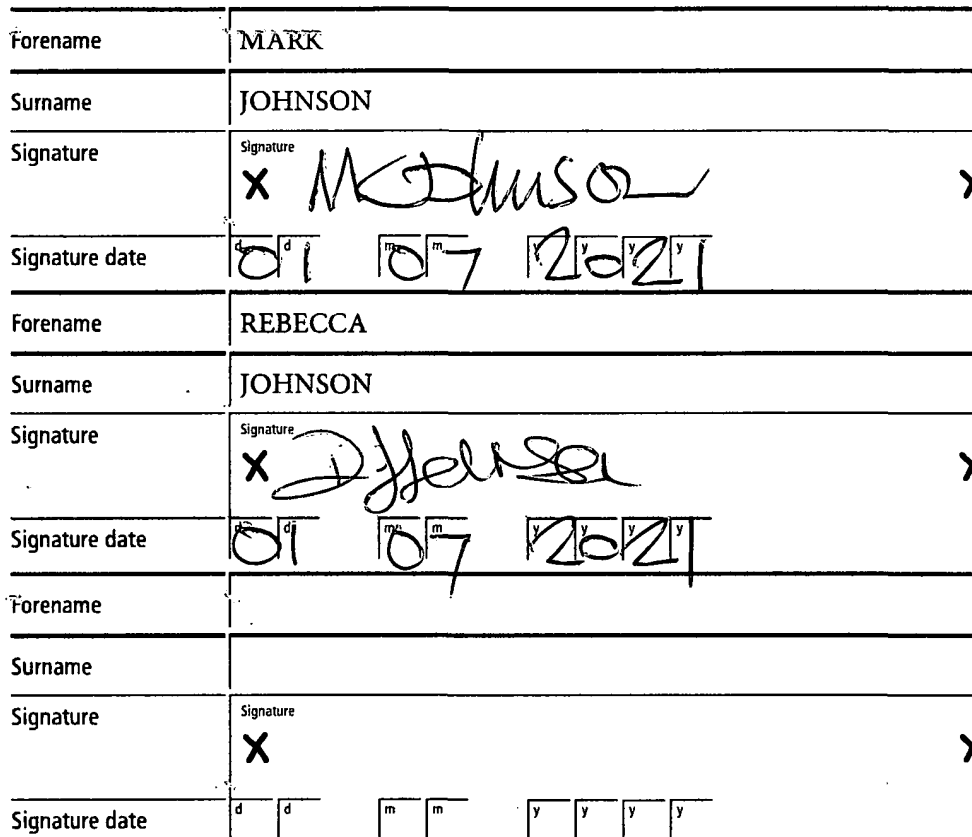 Forename MARK
Surname JOHNSON
Signature Signature
X MJohnson X
Signature date d d m m y y y y
01 07 2021
Forename REBECCA
Surname JOHNSON
Signature Signature
X X
Signature date d d m m y y y y
01 07 2021
Forename
Surname
Signature Signature
X X
Signature date d d m m y y y y